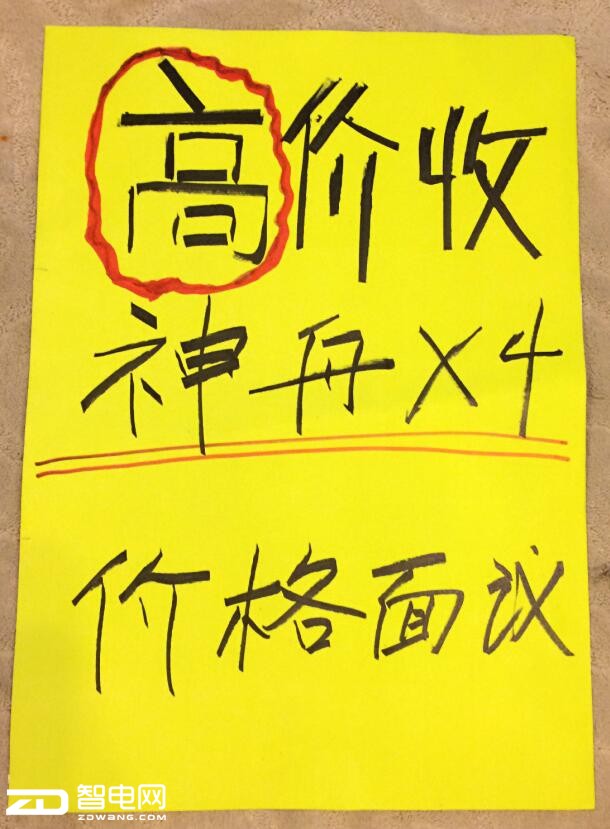 高价收
神舟X4
价格面议
ZD 智电网
ZDWANG.COM